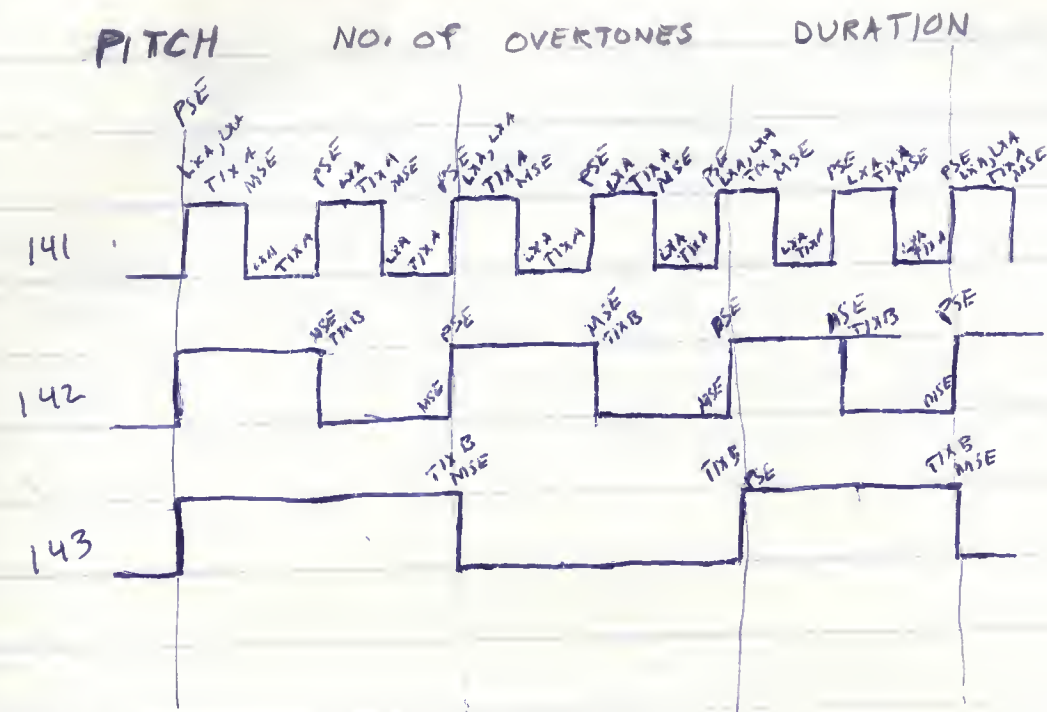 PITCH NO. OF OVERTONES DURATION
PSE
LXA, LXA
TIXA
MSE
PSE
LXA
TIXA
MSE
PSE
LXA, LXA
TIXA
MSE
PSE
LXA
TIXA
MSE
PSE
LXA, LXA
TIXA
MSE
PSE
LXA
TIXA
MSE
PSE
LXA, LXA
TIXA
MSE
141
LXA
TIXA
LXA
TIXA
LXA
TIXA
LXA
TIXA
LXA
TIXA
LXA
TIXA
142
MSE
TIXB
MSE
PSE
MSE
TIXB
MSE
PSE
MSE
TIXB
MSE
PSE
143
TIXB
MSE
TIXB
PSE
TIXB
MSE